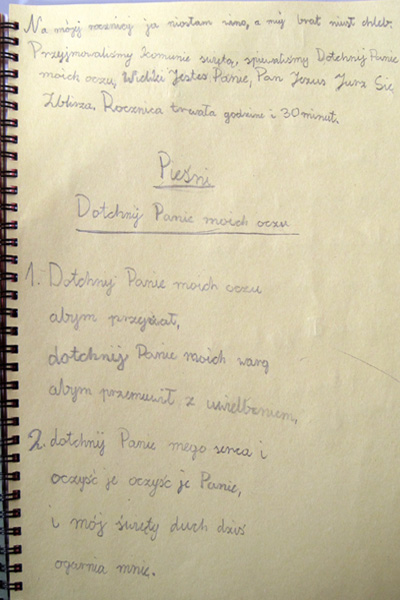 Na mójej rocznicy ja niosłam wino, a mój brat niusł chleb.
Przyjmowaliśmy komunie święta, śpiewaliśmy Dotchnij Panie
moich oczu, Wielki Jesteś Panie, Pan Jezus Jurz Się
Zblirza. Rocznica trwała godzine i 30 minut.
Pieśni
Dotchnij Panie moich oczu
1. Dotchnij Panie moich oczu
abym przejżał,
dotchnij Panie moich warg
abym przemuwił z uwielbieniem,
2. dotchnij Panie mego serca i
oczyść je oczyść je Panie,
i mój święty duch dziś
ogarnia mnie.